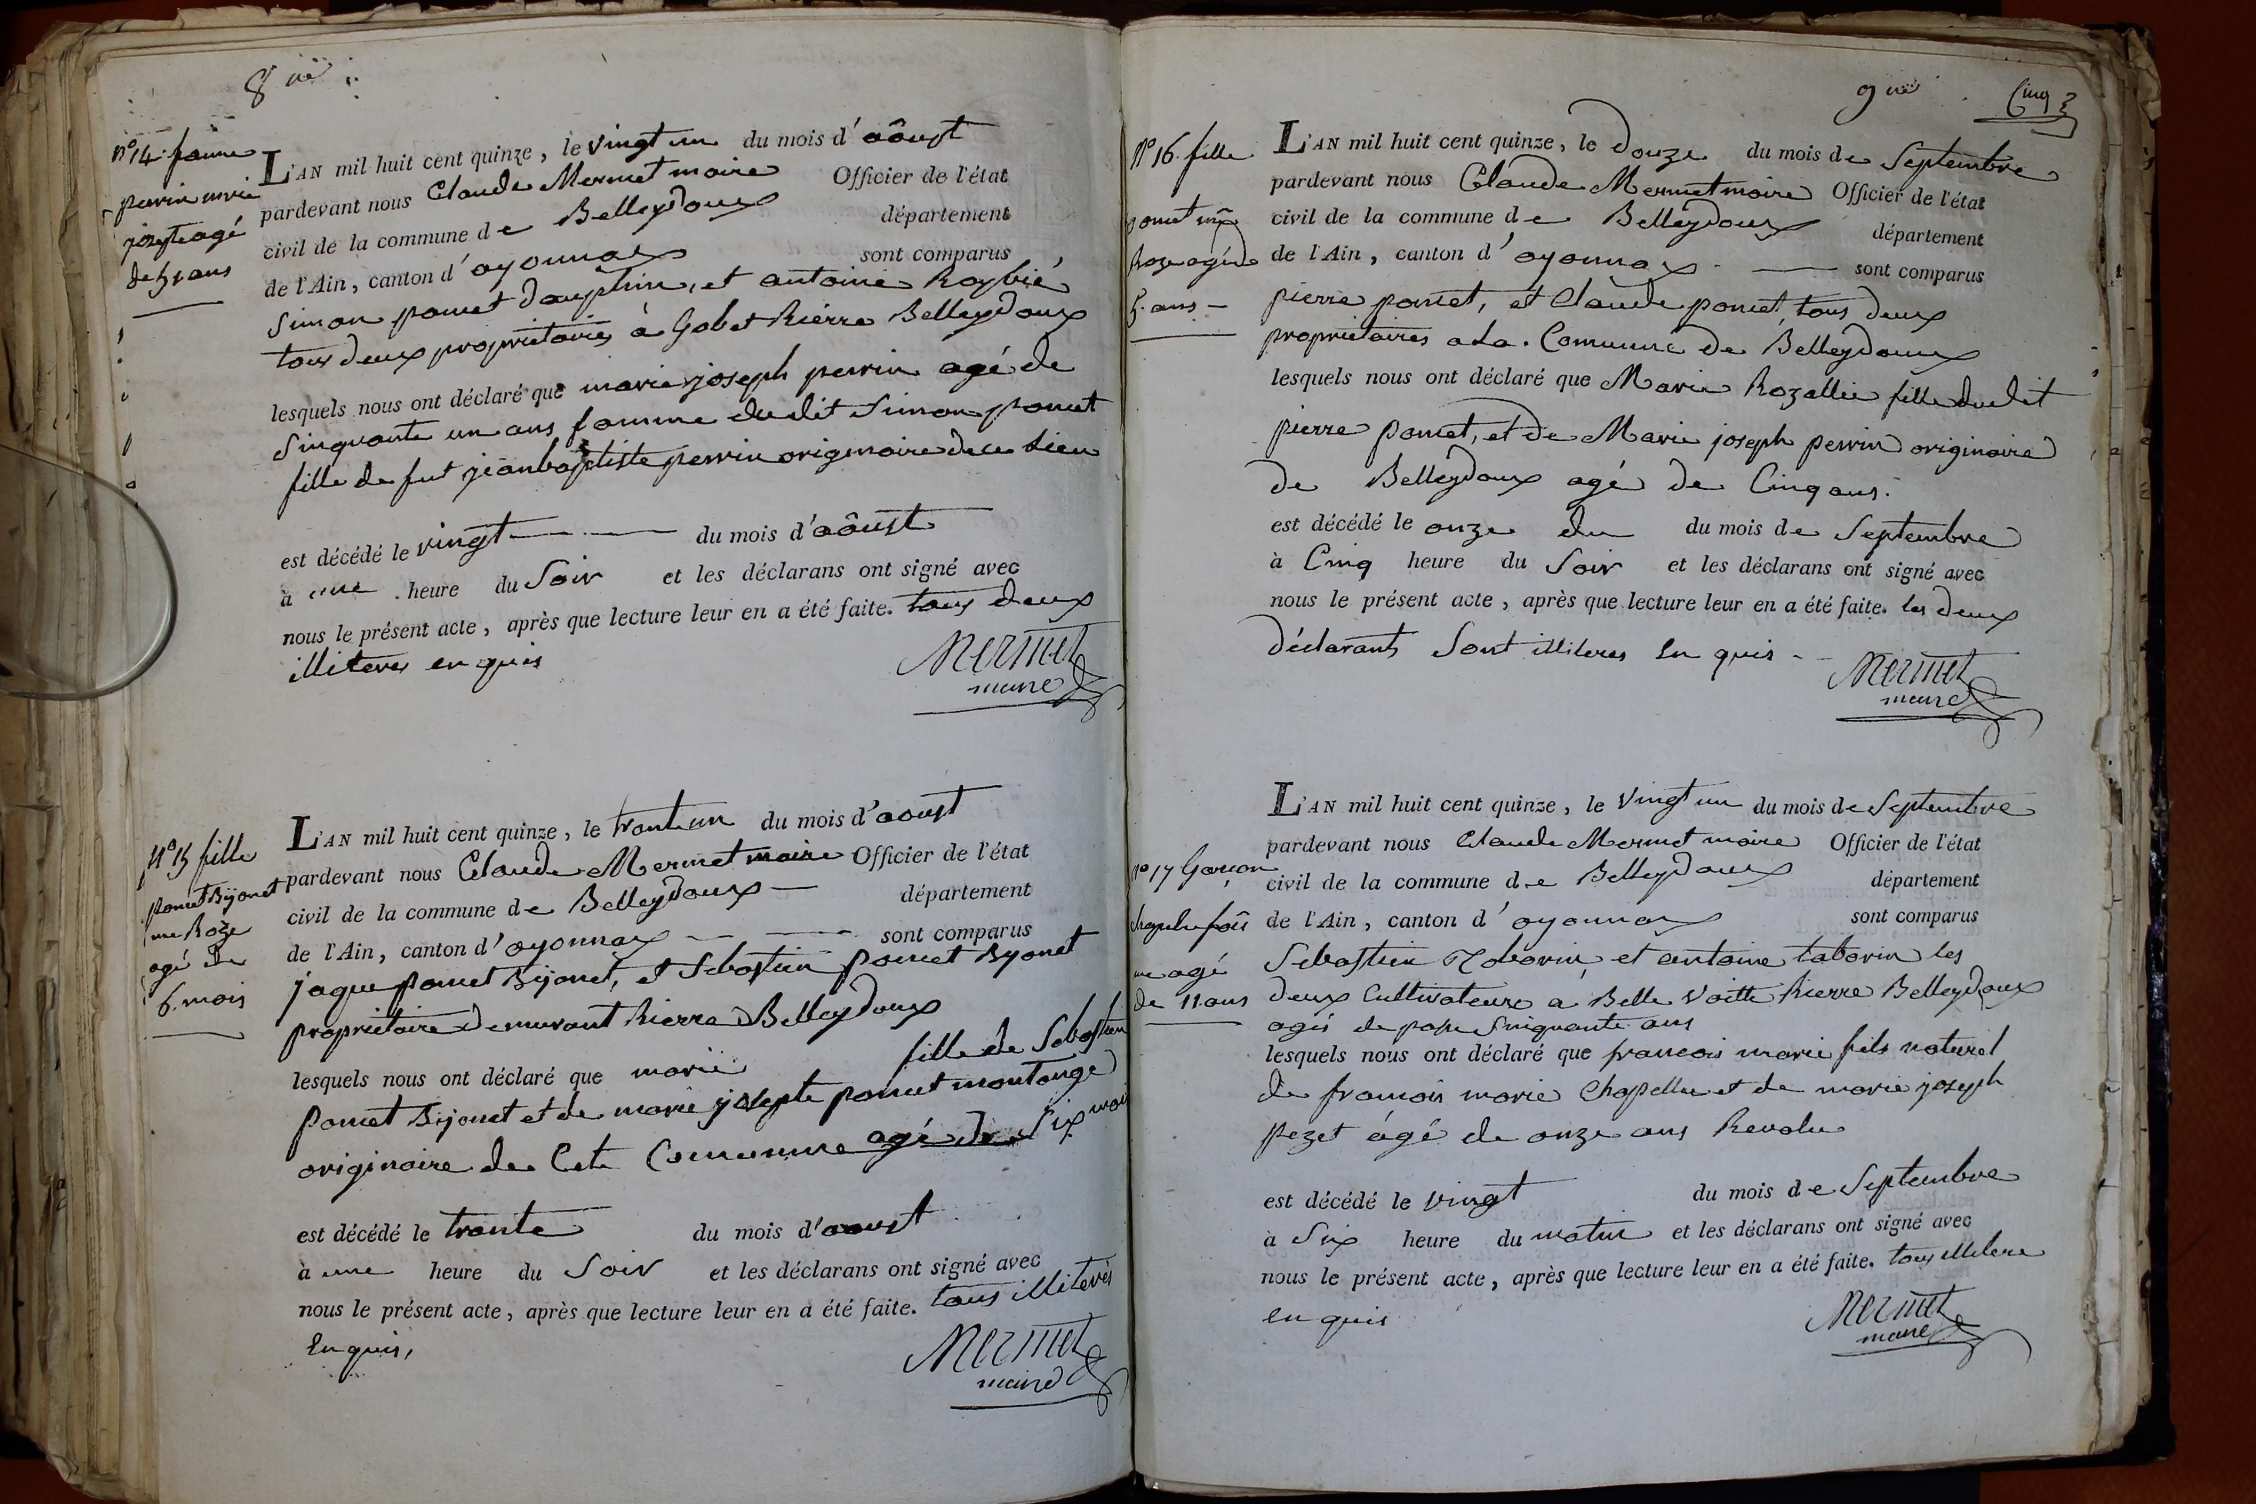 8 me
n° 14. famme
perrin mrie
josepte agé
de 51 ans
L'AN mil huit cent quinze, le vingt un du mois d'aôust
pardevant nous Claude Mermet maire Officier de l'état
civil de la commune de Belleydoux département
de l'Ain, canton d'oyonnax sont comparus
Simon poncet dauphin, et antoine Roybié
tous deux proprietaires à Gobet Rierre Belleydoux
lesquels nous ont déclaré que marie joseph perrin agé de
Sinquante un ans famme dudit Simon poncet
fille de fut jeanbaptiste perrin originaire de ce lieu
est décédé le vingt du mois d'aôust
à une heure du Soir et les déclarans ont signé avec
nous le présent acte, après que lecture leur en a été faite. tous deux
illiteres enquis
Mermet
maire
N° 15 fille
poncet Bijonet
mie Roze
agé de
6. mois
L'AN mil huit cent quinze, le trante un du mois d'aoust
pardevant nous Claude Mermet maire Officier de l'état
civil de la commune de Belleydoux département
de l'Ain, canton d'oyonnax sont comparus
jaque poncet Bijonet, et Sebastien poncet Byonet
proprietaire demurant Rierre Belleydoux
lesquels nous ont déclaré que marie fille de Sebastien
poncet Bijonet et de marie josepte poncet montange
originaire de Cete Commune agé de Six mois
est décédé le trante du mois d'aoust
à une heure du Soir et les déclarans ont signé avec
nous le présent acte, après que lecture leur en a été faite. tous illiterés
Enquis,
Mermet
maire
9 me
Cinq
N° 16. fille
poncet mie
Roze agé de
5. ans
L'AN mil huit cent quinze, le douze du mois de Septembre
pardevant nous Claude Mermet maire Officier de l'état
civil de la commune de Belleydoux département
de l'Ain, canton d'oyonnax sont comparus
pierre poncet, et Claude poncet, tous deux
proprietaires a La Comune de Belleydoux
lesquels nous ont déclaré que Marie Rozallie fille dudit
pierre poncet, et de Marie joseph perrin originaire
de Belleydoux agé de Cinq ans.
est décédé le onze du du mois de Septembre
à Cinq heure du Soir et les déclarans ont signé avec
nous le présent acte, après que lecture leur en a été faite. les deux
déclarants Sont illiteres Enquis
Mermet
maire
n° 17 Garcon
chapelu fois
mie agé
de 11 ans
L'AN mil huit cent quinze, le Vingt un du mois de Septembre
pardevant nous Claude Mermet maire Officier de l'état
civil de la commune de Belleydoux département
de l'Ain, canton d'oyonnax sont comparus
Sebastien Taborin, et antoine taborin les
deux Cultivateurs a Belle Voitte Rierre Belleydoux
agés de passe Sinquante ans
lesquels nous ont déclaré que francois marie fils naturel
de francois marie Chapellu et de marie joseph
pezet égé de onze ans Revolu
est décédé le vingt du mois de Septembre
à Six heure du matin et les déclarans ont signé avec
nous le présent acte, après que lecture leur en a été faite. tous illitere
enquis
Mermet
maire